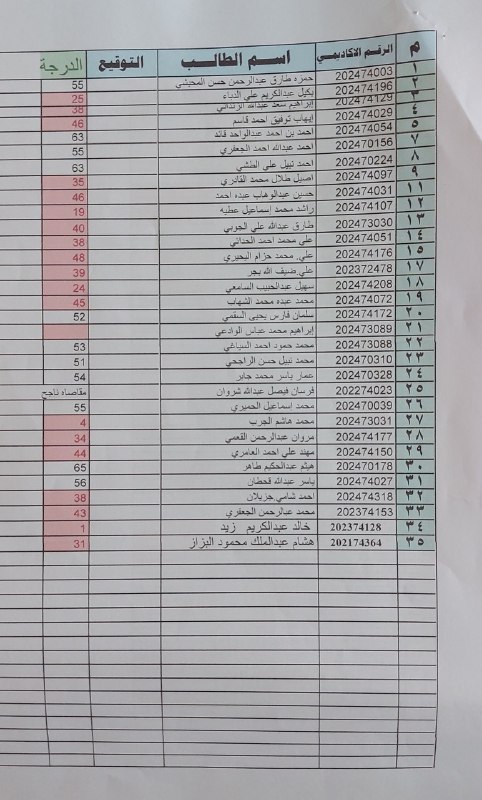 م الرقم الاكاديمي اسم الطالب التوقيع الدرجة
١ 202474003 حمزه طارق عبدالرحمن حسن المحبشي 55
٢ 202474196 بكيل عبدالكريم علي الذباء 25
٣ 202474129 إبراهيم سعد عبدالله الزنداني 38
٤ 202474029 إيهاب توفيق احمد قاسم 46
٥ 202474054 احمد بن احمد عبدالواحد قائد 63
٧ 202470156 احمد عبدالله احمد الجعفري 55
٨ 202470224 احمد نبيل علي 63
٩ 202474097 اصيل طلال محمد القادري 35
١١ 202474031 حسين عبدالوهاب عبده احمد 46
١٢ 202474107 راشد محمد إسماعيل عطيه 19
١٣ 202473030 طارق عبدالله علي الجوبي 40
١٤ 202474051 علي محمد احمد الحداثي 38
١٥ 202474176 علي محمد حزام البحيري 48
١٧ 202372478 علي ضيف الله بجر 39
١٨ 202474208 سهيل عبدالحبيب السامعي 24
١٩ 202474072 محمد عبده محمد الشهاب 45
٢٠ 202474172 سلمان فارس يحيى السقمي 52
٢١ 202473089 إبراهيم محمد عباس الوادعي
٢٢ 202473088 محمد حمود احمد السياغي 53
٢٣ 202470310 محمد نبيل حسن الراجحي 51
٢٤ 202470328 عمار ياسر محمد جابر 54
٢٥ 202274023 فرسان فيصل عبدالله شروان مقاصاه ناجح
٢٦ 202470039 محمد اسماعيل الحميري 55
٢٧ 202473031 محمد هاشم الجرب 4
٢٨ 202474177 مروان عبدالرحمن القعمي 34
٢٩ 202474150 مهند علي احمد العامري 44
٣٠ 202470178 هيثم عبدالحكيم طاهر 65
٣١ 202474027 ياسر عبدالله قحطان 56
٣٢ 202474318 احمد شامي جزيلان 38
٣٣ 202374153 محمد عبالرحمن الجعفري 43
٣٤ 202374128 خالد عبدالكريم زيد 1
٣٥ 202174364 هشام عبدالملك محمود البزاز 31